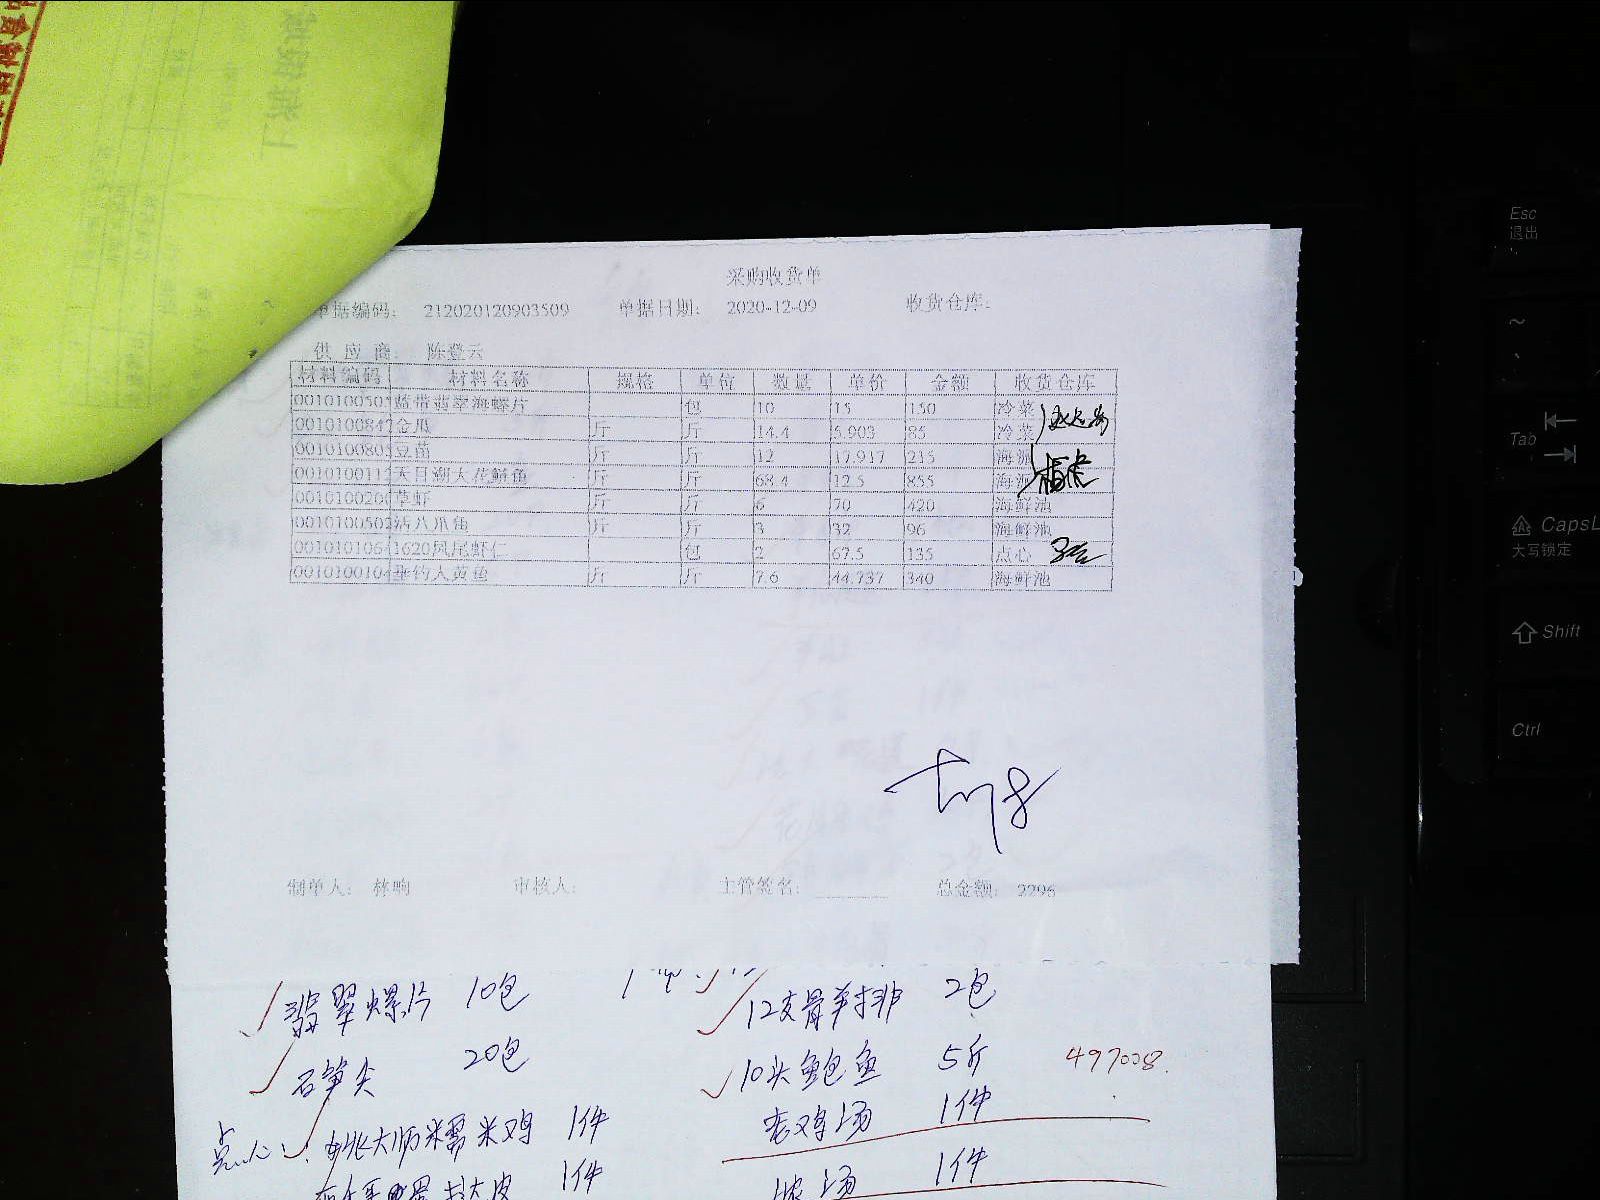 采购收货单
单据编码： 212020120903509 单据日期： 2020-12-09 收货仓库：
供应商： 陈登云
材料编码 材料名称 规格 单位 数量 单价 金额 收货仓库
001010050 蓝带翡翠海螺片 包 10 15 150 冷菜
001010084 金瓜 斤 斤 14.4 5.903 85 冷菜
001010080 豆苗 斤 斤 12 17.917 215
001010011 天目湖大花鲢鱼 斤 斤 68.4 12.5 855
001010020 草虾 斤 斤 6 70 420 海鲜池
001010050 活八爪鱼 斤 斤 3 32 96 海鲜池
001010106 1620凤尾虾仁 包 2 67.5 135 点心
001010010 垂钓大黄鱼 斤 斤 7.6 44.737 340 海鲜池
制单人： 林响 审核人： 主管签名： 总金额： 2296
翡翠螺片 10包 12支骨羊排 2包
石笋尖 20包 10头鲍鱼 5斤 497008.
点心： 大师米糯米鸡 1件 老鸡汤 1件
1件 浓汤 1件
Esc
退出
~
Tab
CapsL
大写锁定
Shift
Ctrl